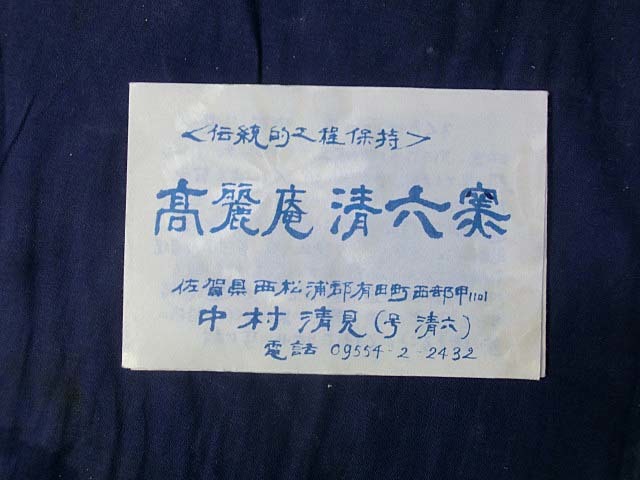 <伝統的工程保持>
高麗庵清六窯
佐賀県西松浦郡有田町西部甲1101
中村清見(号 清六)
電話 09554-2-2432